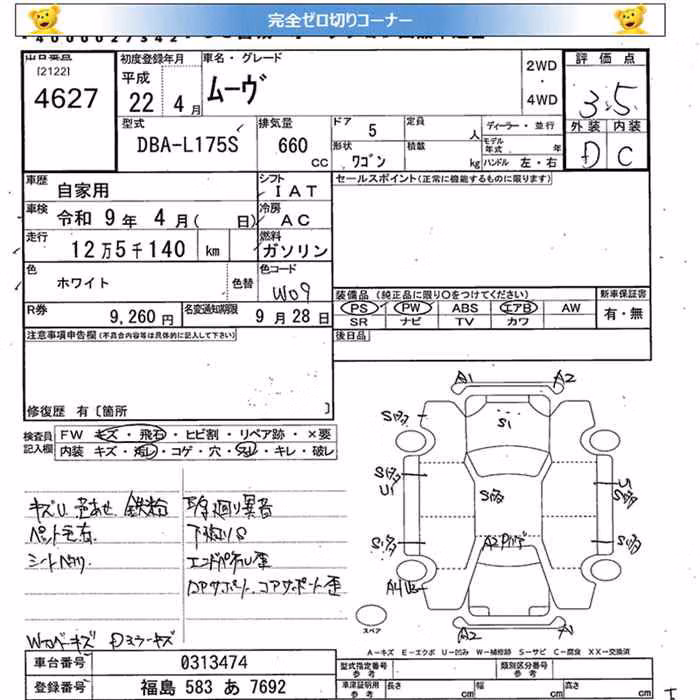 完全ゼロ切りコーナー
出品番号 初度登録年月 車名・グレード 2WD・4WD 評価点
[2122]
4627 平成 22年 4月 ムーヴ 3.5
外装 内装
D C
型式 DBA-L175S 排気量 660 cc ドア 5 定員 人 ディーラー・並行
形状 ワゴン 積載 kg モデル年式 年 ハンドル 左・右
車歴 自家用 シフト IAT セールスポイント(正常に機能するものに限ります)
車検 令和 9年 4月( 日) 冷房 AC
走行 12万5千140 km 燃料 ガソリン
色 ホワイト 色替 色コード W09
装備品 (純正品に限り〇をつけてください) 新車保証書
PS PW ABS エアB AW 有・無
SR ナビ TV カワ
R券 9,260円 名変通知期限 9月28日
注意事項申告欄(不具合内容等は具体的に記入して下さい) 後日品
修復歴 有〔箇所 〕
検査員記入欄 FW キズ・飛石・ヒビ割・リペア跡・×要
内装 キズ・汚レ・コゲ・穴・スレ・キレ・破レ
A1 A2
S1
U1
A2
A1
キズU 色あせ 鉄粉 下廻り異音
ペット毛有 下廻りS
シートヘタリ エンドパネル歪
コアサポート、コアサポート歪
スペア
A-キズ E-エクボ U-凹み W-補修跡 S-サビ C-腐食 XX-交換済
車台番号 0313474 型式指定番号 参考 類別区分番号 参考
登録番号 福島 583 あ 7692 車庫証明用 参考 長さ cm 幅 cm 高さ cm